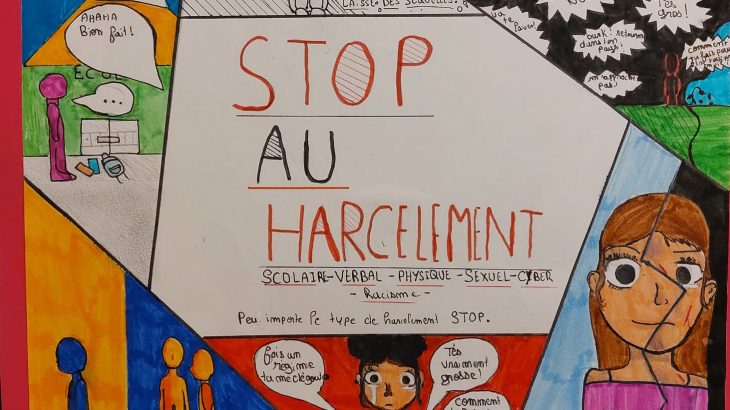 LAISSE DES SEQUELLES.
AHAHA
Bien fait!
ECOLE
...
Tes
gros!
ouuk! retourne
dans ton
pays!
m'approche
pas!
comment
STOP
AU
HARCELEMENT
SCOLAIRE-VERBAL-PHYSIQUE-SEXUEL-CYBER
- Racisme -
Peu importe le type de harcelement STOP.
fais un
regime
tu me
T'es
vraiment
grosse!
comment